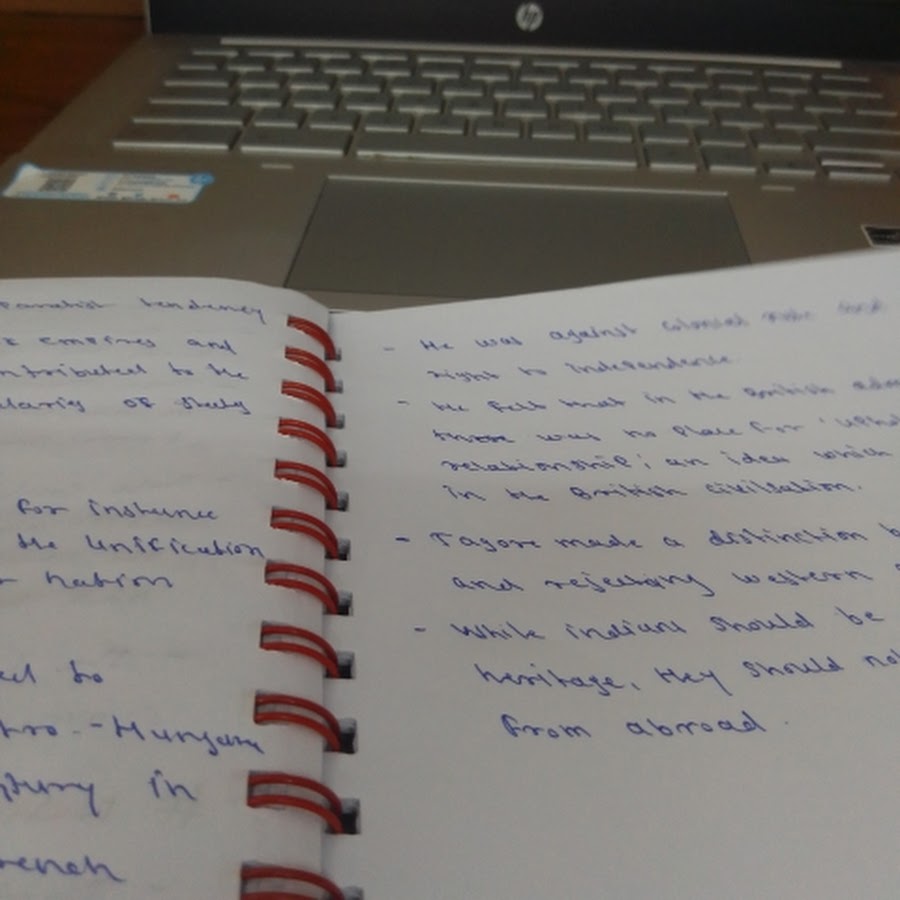 hp
tendency
empires and
ntributed to the
of study
for instance
the unification
nation
ed to
tro - Hungary
in
rench
- He was against colonial rule and
right to independence.
- He felt that in the British
there was no place for '
relationship', an idea which
in the British civilsation.
- Tagore made a distinction b
and rejecting western
- While indians should be
heritage, they should not
from abroad.